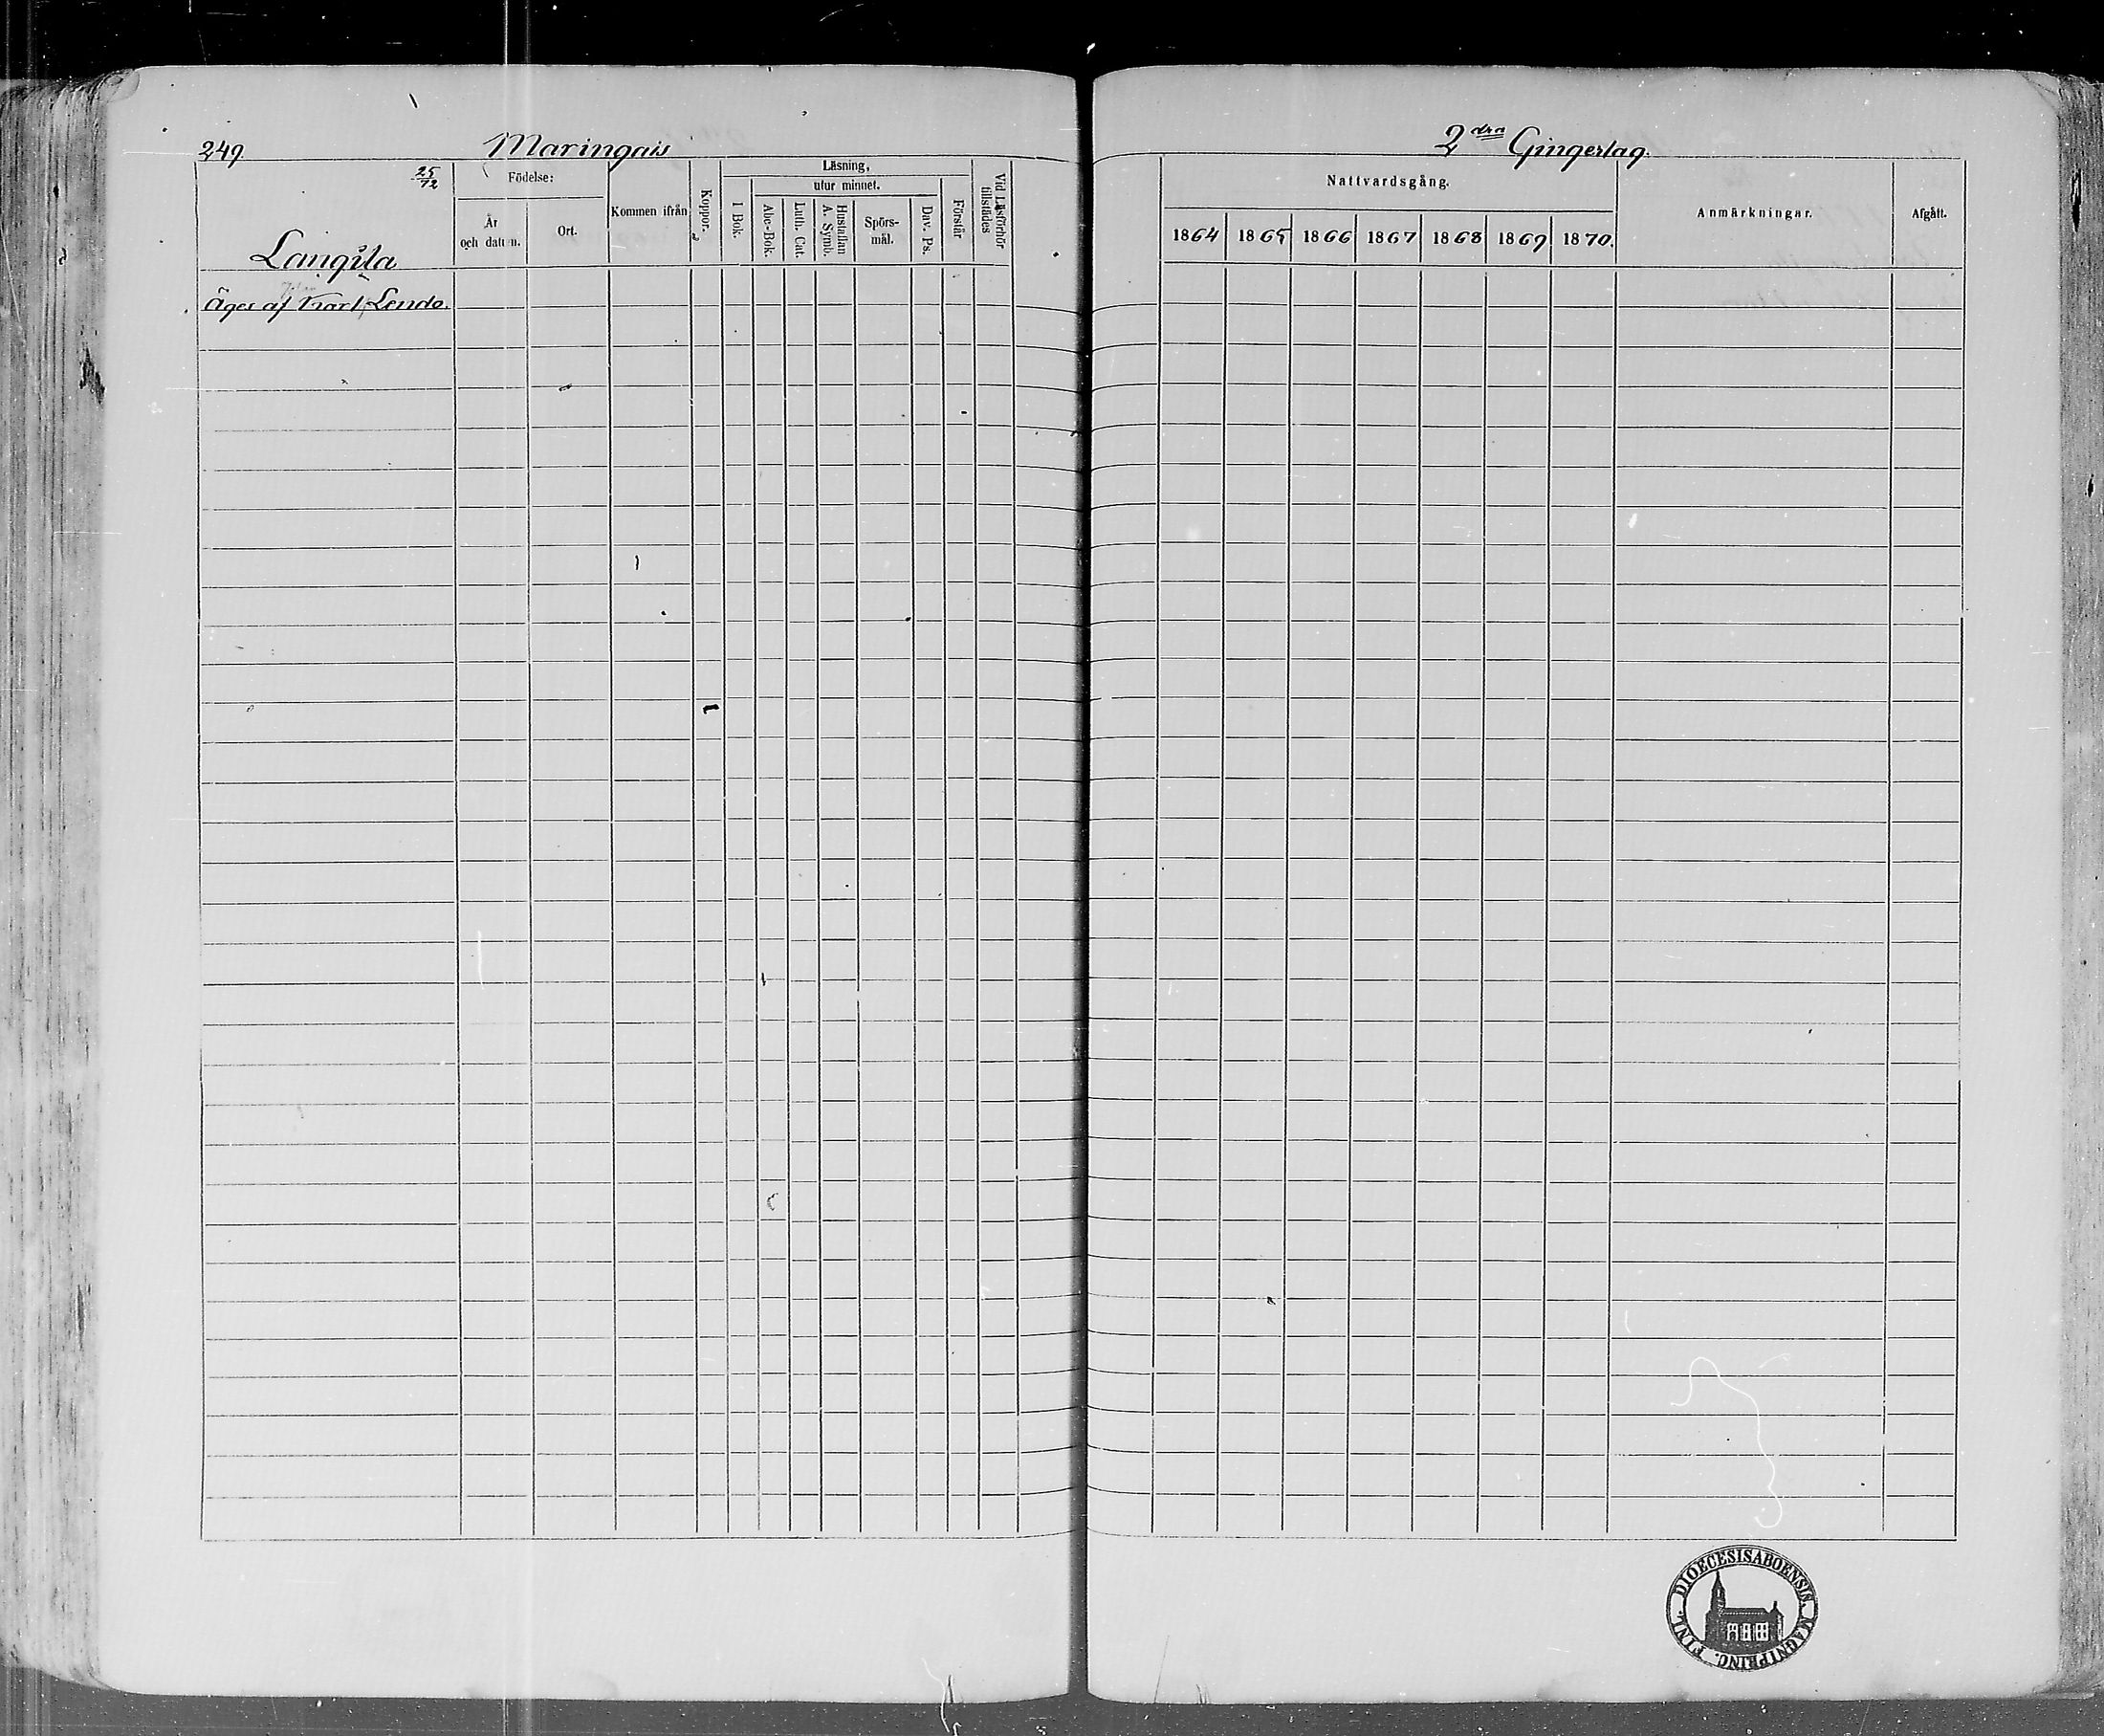 249.
Maringais
25/72
Langila
Födelse:
År och datum.
Ort.
Kommen ifrån
Koppor.
Läsning,
utur minnet.
I Bok.
Abc-Bok.
Luth. Cat.
Hustaflan A. Symb.
Spörs-mål.
Dav. Ps.
Förstår
Vid Läsförhör tillstädes
Äges af Karl Lendo.
2dra Gingerlag.
Nattvardsgång.
1864 1865 1866 1867 1868 1869 1870.
Anmärkningar.
Afgått.
DIOECESIS ABOENSIS. MAGNI PRINC. FINL.